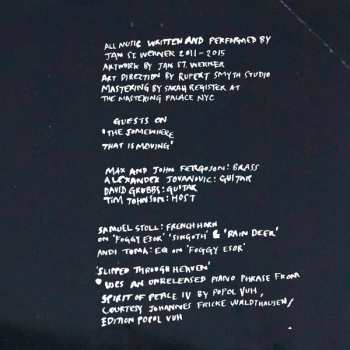 ALL MUSIC WRITTEN AND PERFORMED BY
JAN ST. WERNER 2011-2015
ARTWORK BY JAN ST. WERNER
ART DIRECTION BY RUPERT SMYTH STUDIO
MASTERING BY SARAH REGISTER AT
THE MASTERING PALACE NYC
GUESTS ON
"THE SOMEWHERE
THAT IS MOVING"
MAX AND JOHN FERGUSON: BRASS
ALEXANDER JOVANOVIC: GUITAR
DAVID GRUBBS: GUITAR
TIM JOHNSON: HOST
SAMUEL STOLL: FRENCH HORN
ON "FOGGY ESOR" "SINGOTH" & "RAIN DEER"
ANDI TOMA: EQ ON "FOGGY ESOR"
"SLIPPED THROUGH HEAVEN"
USES AN UNRELEASED PIANO PHRASE FROM
SPIRIT OF PEACE IV BY POPOL VUH,
COURTESY JOHANNES FRICKE WALDTHAUSEN/
EDITION POPOL VUH